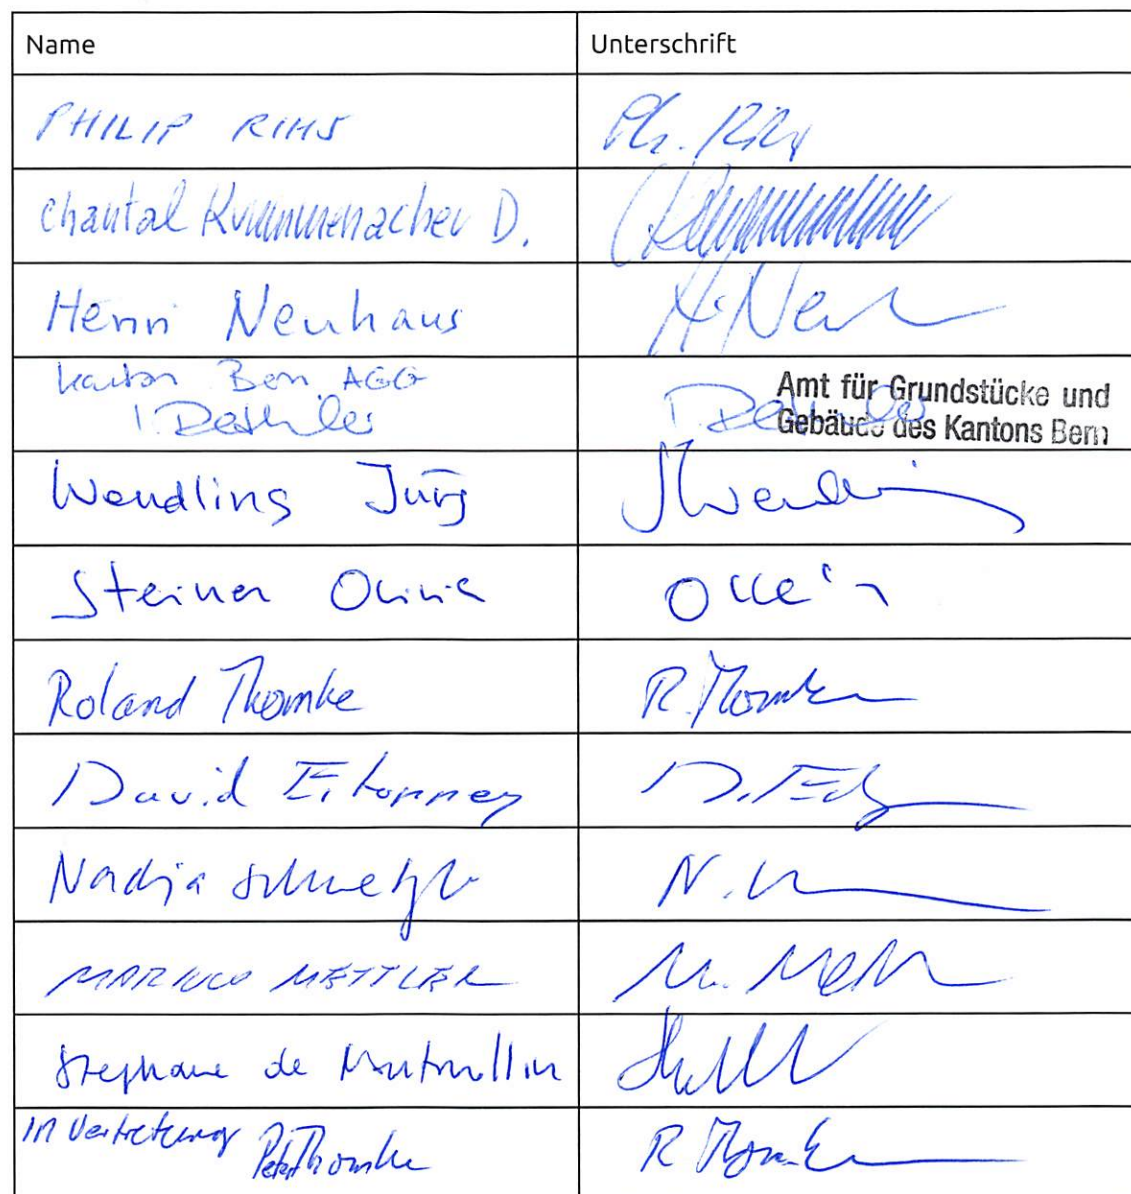 Name Unterschrift
PHILIP RIHS Ph. Rihs
Chantal Krummenacher D.
Henri Neuhaus H. Neu
Kanton Bern AGG
Amt für Grundstücke und
Gebäude des Kantons Bern
Wendling Jürg JWendling
Steiner Olivia
Roland Thomke R. Thomke
David Eitonney
Nadja
MARKUS METTLER M. Mett
Stephane de Montmollin
in Vertretung Peter Thomke R Thomke